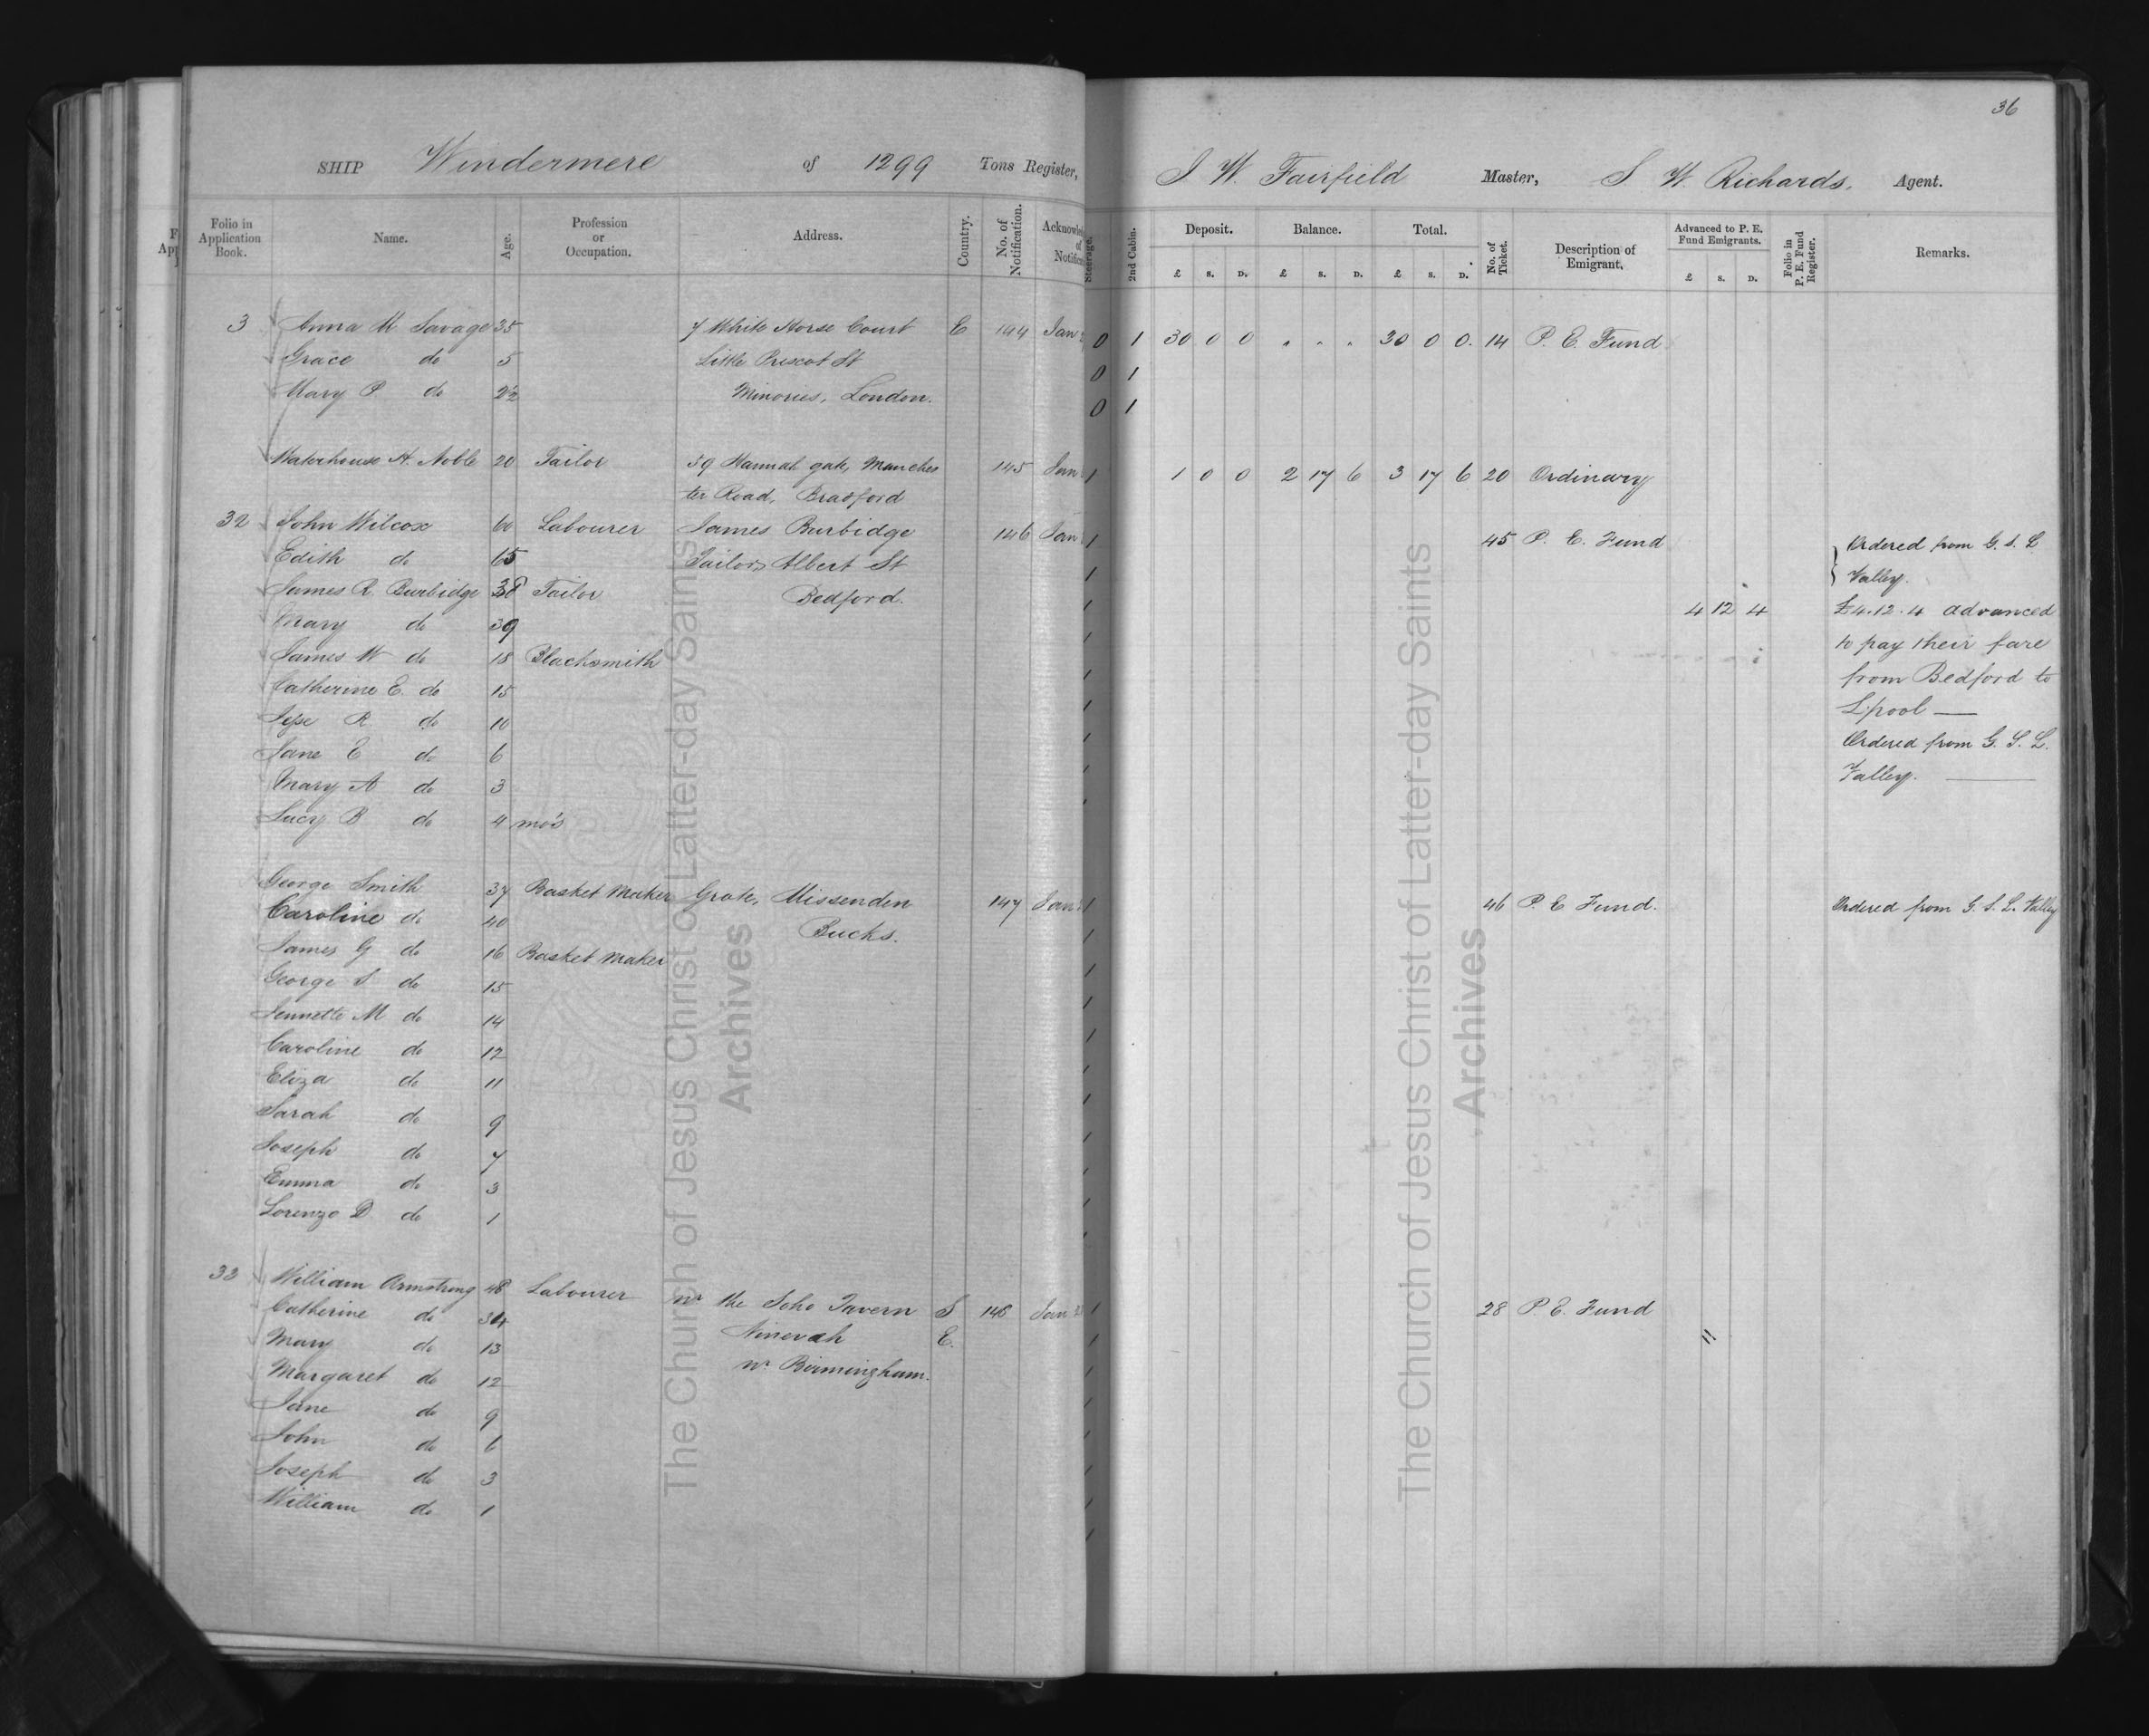 36
SHIP Windermere of 1299 Tons Register, J. W. Fairfield Master, S W. Richards, Agent.
Folio in Application Book. Name. Age. Profession or Occupation. Address. Country. No. of Notification. Steerage. 2nd Cabin. Deposit. Balance. Total. No. of Ticket. Description of Emigrant. Advanced to P. E. Fund Emigrants. Folio in P. E. Fund Register. Remarks.
£ S. D. £ S. D. £ S. D. £ S. D.
3 Anna M Savage 35 7 White Horse Court E 144 Jan 0 1 30 0 0 " " " 30 0 0. 14 P. E. Fund
Grace do 5 Little Prescot St 0 1
Mary P do 2½ Minories, London. 0 1
Waterhouse H. Noble 20 Tailor 39 Hannah gate, Manches 145 Jan 1 1 0 0 2 17 6 3 17 6 20 Ordinary
ter Road, Bradford
32 John Wilcox 60 Labourer James Burbidge 146 Jan 1 45 P. E. Fund Ordered from G. S. L
Edith do 65 Tailor, Albert St 1 Valley.
James R. Burbidge 38 Tailor Bedford. 1 4 12 4 £4.12.4 advanced
Mary do 39 1 to pay their fare
James W do 18 Blacksmith 1 from Bedford to
Catherine E. do 15 1 L'pool —
Jesse R do 10 1 Ordered from G. S. L.
Jane E do 6 1 Valley. —
Mary A do 3 1
Lucy B do 4 mo's
George Smith 37 Basket Maker Grate, Missenden 147 Jan 1 46 P. E Fund. Ordered from G. S. L. Valley
Caroline do 40 Bucks. 1
James G do 16 Basket Maker 1
George S do 15 1
Jennette M do 14 1
Caroline do 12 1
Eliza do 11 1
Sarah do 9 1
Joseph do 7 1
Emma do 3 1
Lorenzo D do 1 1
33 William Armstrong 48 Labourer nr the Soho Tavern S 148 Jan 1 28 P. E. Fund
Catherine do 34 Ninevah E. 1 "
Mary do 13 nr Birmingham. 1
Margaret do 12 1
Jane do 9 1
John do 6 1
Joseph do 3 1
William do 1 1
The Church of Jesus Christ of Latter-day Saints
Archives
The Church of Jesus Christ of Latter-day Saints
Archives